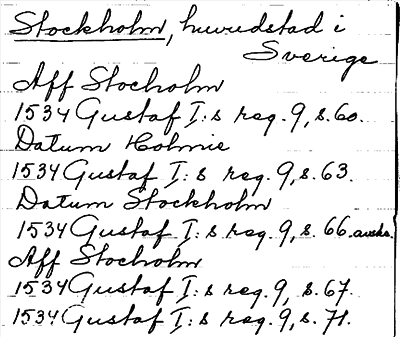 Stockholm, huvudstad i
Sverige
Aff Stocholm
1534 Gustaf I:s reg. 9, s. 60.
Datum Holmie
1534 Gustaf I:s reg. 9, s. 63.
Datum Stockholm
1534 Gustaf I:s reg. 9, s. 66.
Aff Stocholm
1534 Gustaf I:s reg. 9, s. 67.
1534 Gustaf I:s reg. 9, s. 71.